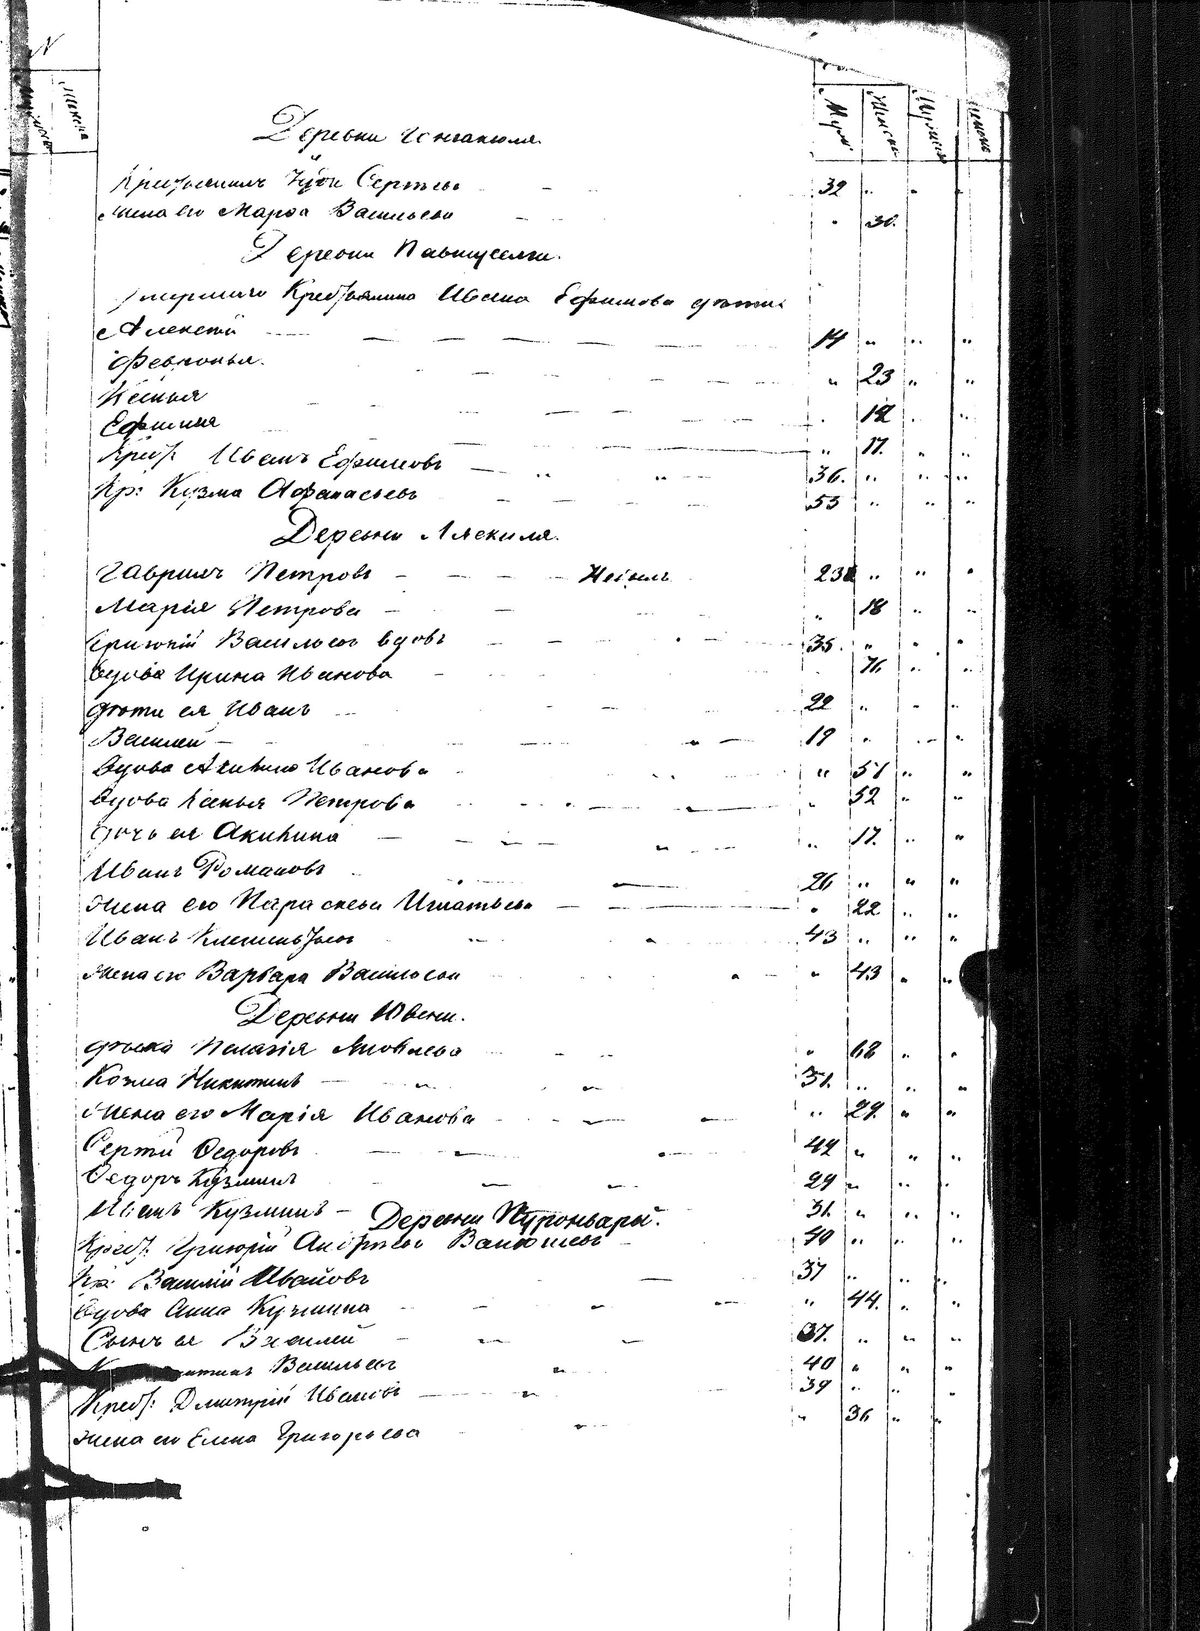 N
Женска
Муж. Женска Мужеска Женска
Деревни
Крестьянинъ Сергѣевъ 32
Жена его Марѳа Васильева 30.
Деревни
Умершаго Крестьянина Ивана Ефимова дѣти:
Алексѣй 14
Февронья. 23
Ксенья 18
Ефимия 17.
Крест: Иванъ Ефимовъ 36.
Кр: Кузма Афанасьевъ 53
Деревни Ляскиля.
Гаврилъ Петровъ 23
Марія Петрова 18
Григорій Васильевъ вдовъ 35.
Вдова Ирина Иванова 76
дѣти ея Иванъ 22
Василей 19
Вдова Акилина Иванова 51
Вдова Ксенья Петрова 52
дочь ея Акилина 17.
Иванъ Романовъ 26
жена его Параскева Игнатьева 22
Иванъ Климентьевъ 43
жена его Варвара Васильева 43
Деревни
дѣвка Пелагія Яковлева 68
Козма Никитинъ 31.
Жена его Марія Иванова 29.
Сергѣй Ѳедоровъ 42
Ѳедоръ Кузминъ 29
Иванъ Кузминъ 31.
Деревни
Крест: Григорій Андрѣевъ 40
Кр: Василій Ивановъ 37
Вдова Анна Кузмина 44.
Сынъ ея Василей 37.
Васильевъ 40
Крест: Дмитрій Ивановъ 39
жена его Елена Григорьева 36